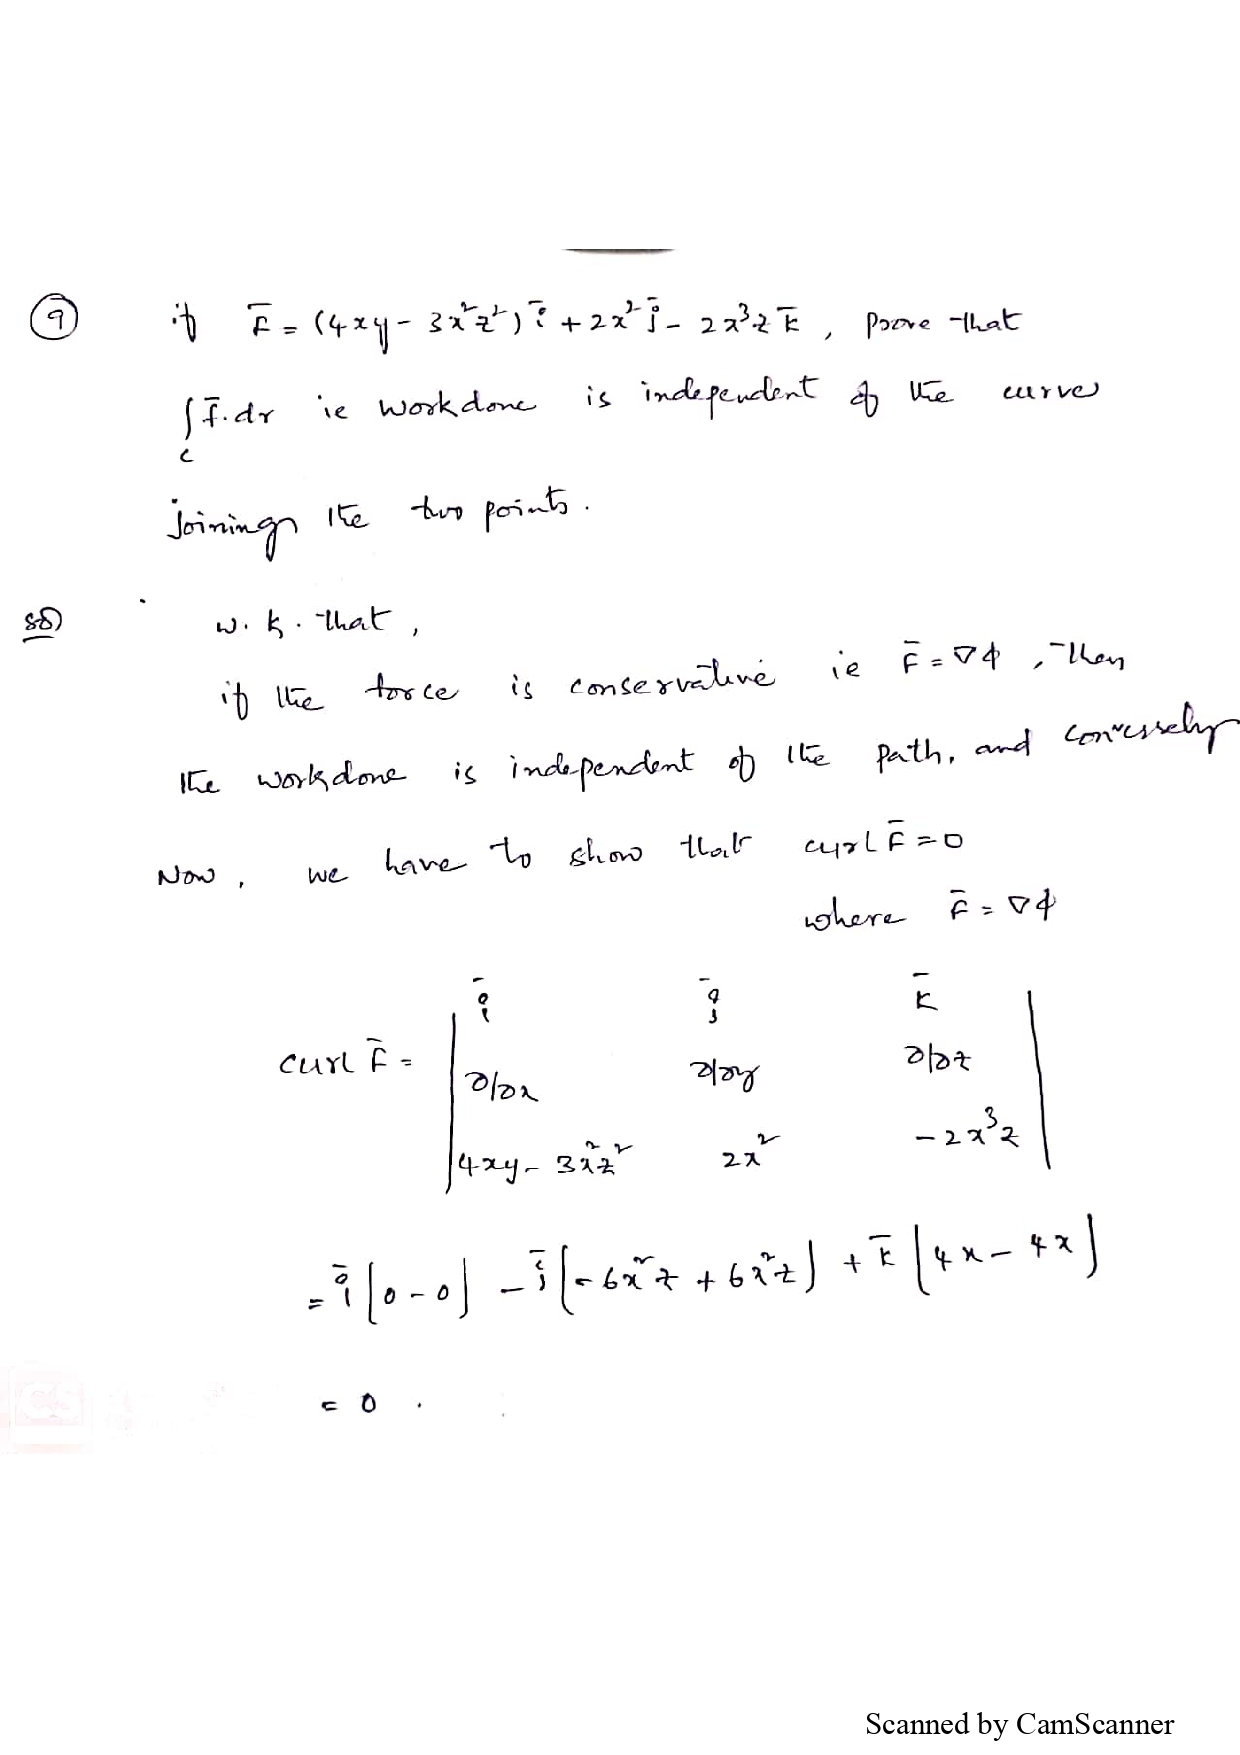 9 if F̄ = (4xy - 3x²z²) ī + 2x² j̄ - 2x³z k̄ , prove that
∫c F̄.dr ie workdone is independent of the curve
joining the two points.
Sol) W.K. that ,
if the force is conservative ie F̄ = ∇ϕ , then
the workdone is independent of the path, and conversely
Now , we have to show that curl F̄ = 0
where F̄ = ∇ϕ
ī j̄ k̄
curl F̄ = ∂/∂x ∂/∂y ∂/∂z
4xy - 3x²z² 2x² -2x³z
= ī [0-0] - j̄ [-6x²z + 6x²z] + k̄ [4x - 4x]
= 0 .
CS
Scanned by CamScanner